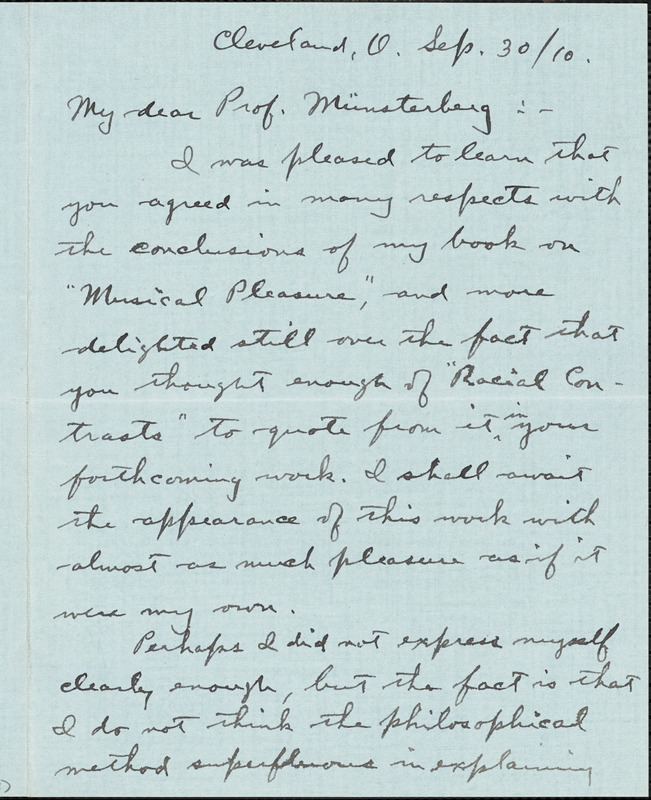 Cleveland, O. Sep. 30/10.
My dear Prof. Münsterberg :-
I was pleased to learn that
you agreed in many respects with
the conclusions of my book on
"Musical Pleasure", and more
delighted still over the fact that
you thought enough of "Racial Con-
trasts" to quote from it, in your
forthcoming work. I shall await
the appearance of this work with
almost as much pleasure as if it
were my own.
Perhaps I did not express myself
clearly enough, but the fact is that
I do not think the philosophical
method superfluous in explaining